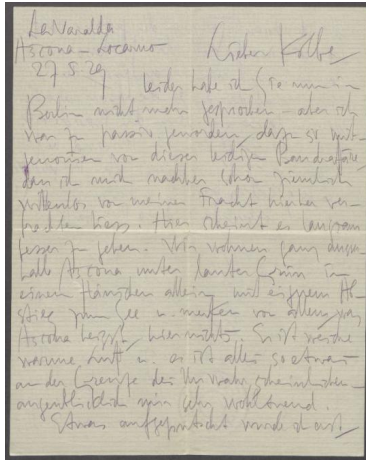 La Navalda
Ascona-Locarno
27 8 29
Lieber Kolbe
leider habe ich Sie nun in
Berlin nicht mehr gesprochen – aber ich
war zu passiv geworden, dazu so mit-
genommen von dieser leidigen
dass ich mich nachher schon ziemlich
willenlos von meiner Fracht hierher ver-
frachten liess. Hier scheint es langsam
besser zu gehen. Wir wohnen ganz ausser-
halb Ascona unter lauter Grün in
einem Häuschen allein, mit eignem Ab-
stieg zum See u. merken von allem, was
Ascona heisst, hier nichts. Es ist weiche
warme Luft u. es ist alles so etwas
an der Grenze des Unwahrscheinlichen –
augenblicklich mir sehr wohltuend.
Etwas aufgepulvert wurde ich erst